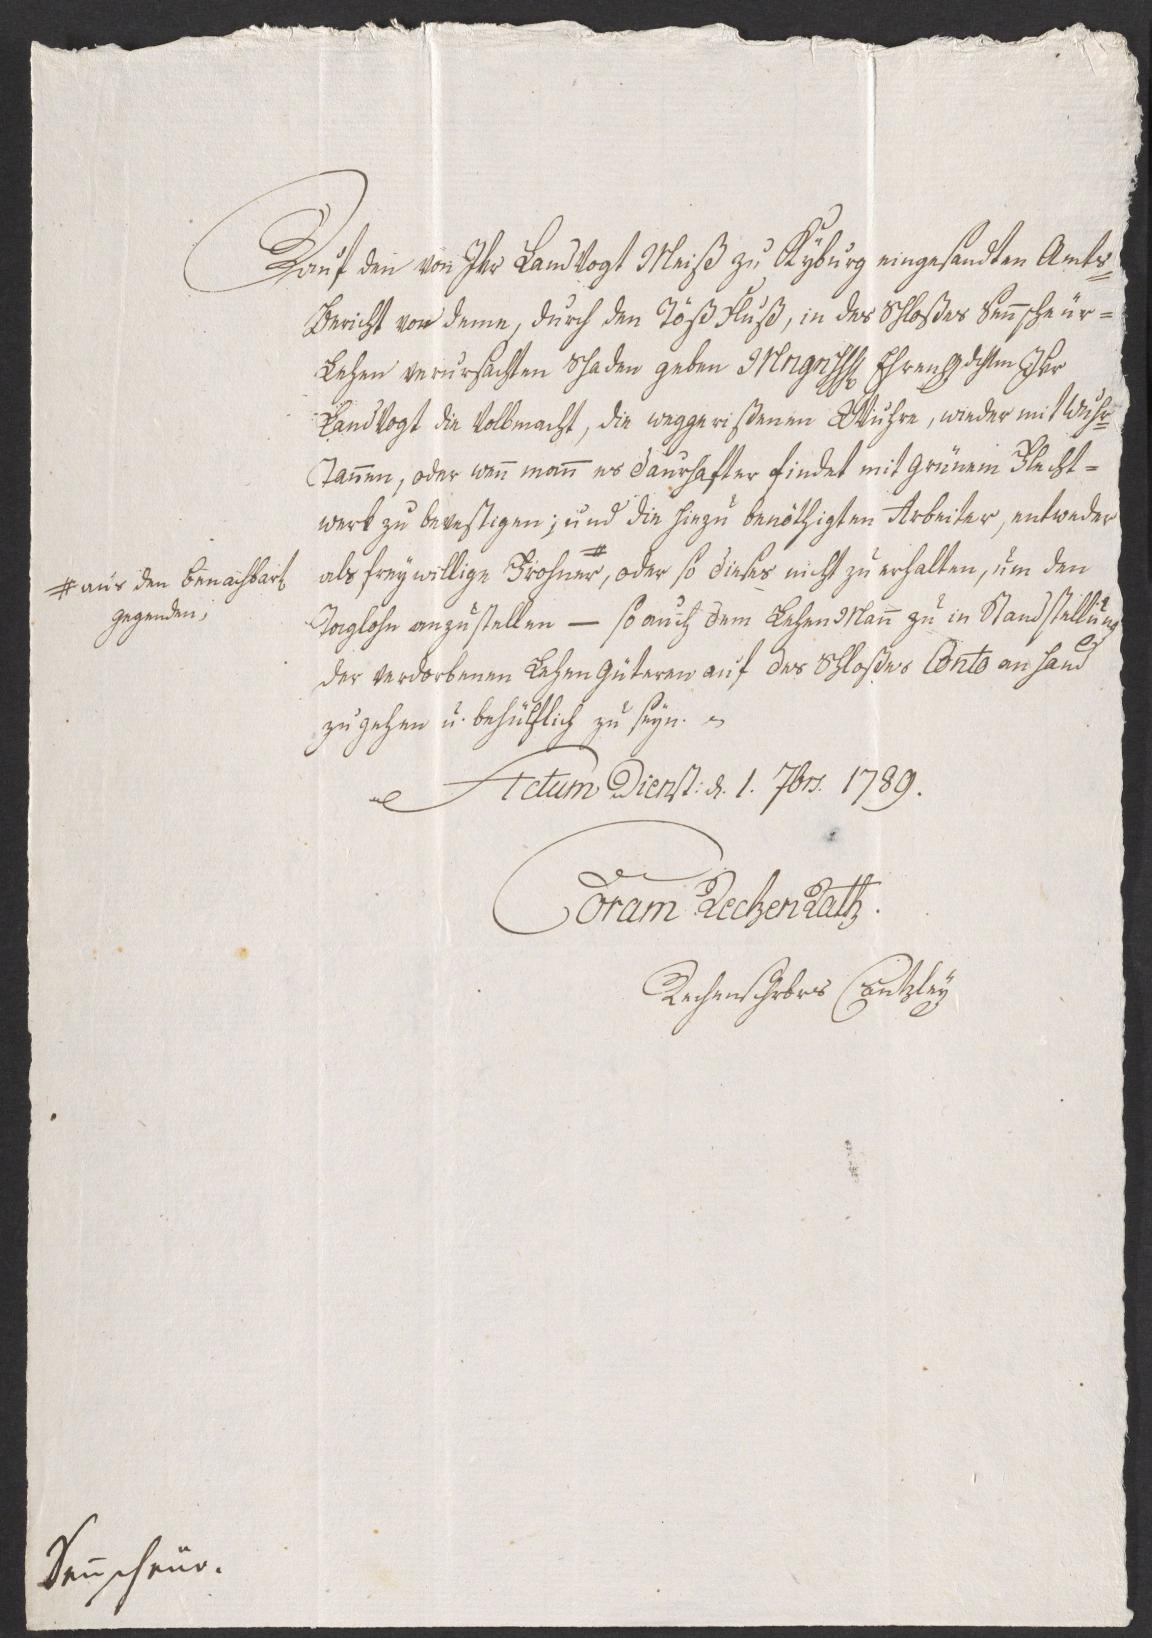 Auf den von Jkr LandVogt Meiß zu Kyburg eingesandten Amts=
Bericht von deme, durch den TößFluß, in des Schloßes Senscheür=
Lehen verursachten Schaden geben MngnHHh EhrenGedchtm Jkr
LandVogt die Vollmacht, die weggerißenen Wuhre, wieder mit Wuhr=
Tannen, oder wenn mann es daurhafter findet mit grünem Flecht=
werk zu bevestigen; und die hiezu benöthigten Arbeiter, entweder
als freywillige Frohner #, oder so dieses nicht zu erhalten, um den
# aus den benachbart.
gegenden;
Taglohn anzustellen — so auch dem LehenMann zu in Standstellung
der verdorbenen LehenGüteren auf des Schloßes Conto an Hand
zugehen u. behülflich zu seyn.
Actum Dienst: d. 1. 7brs. 1789.
Coram RechenRath.
Rechenschrbrs Cantzley
Sennscheür.